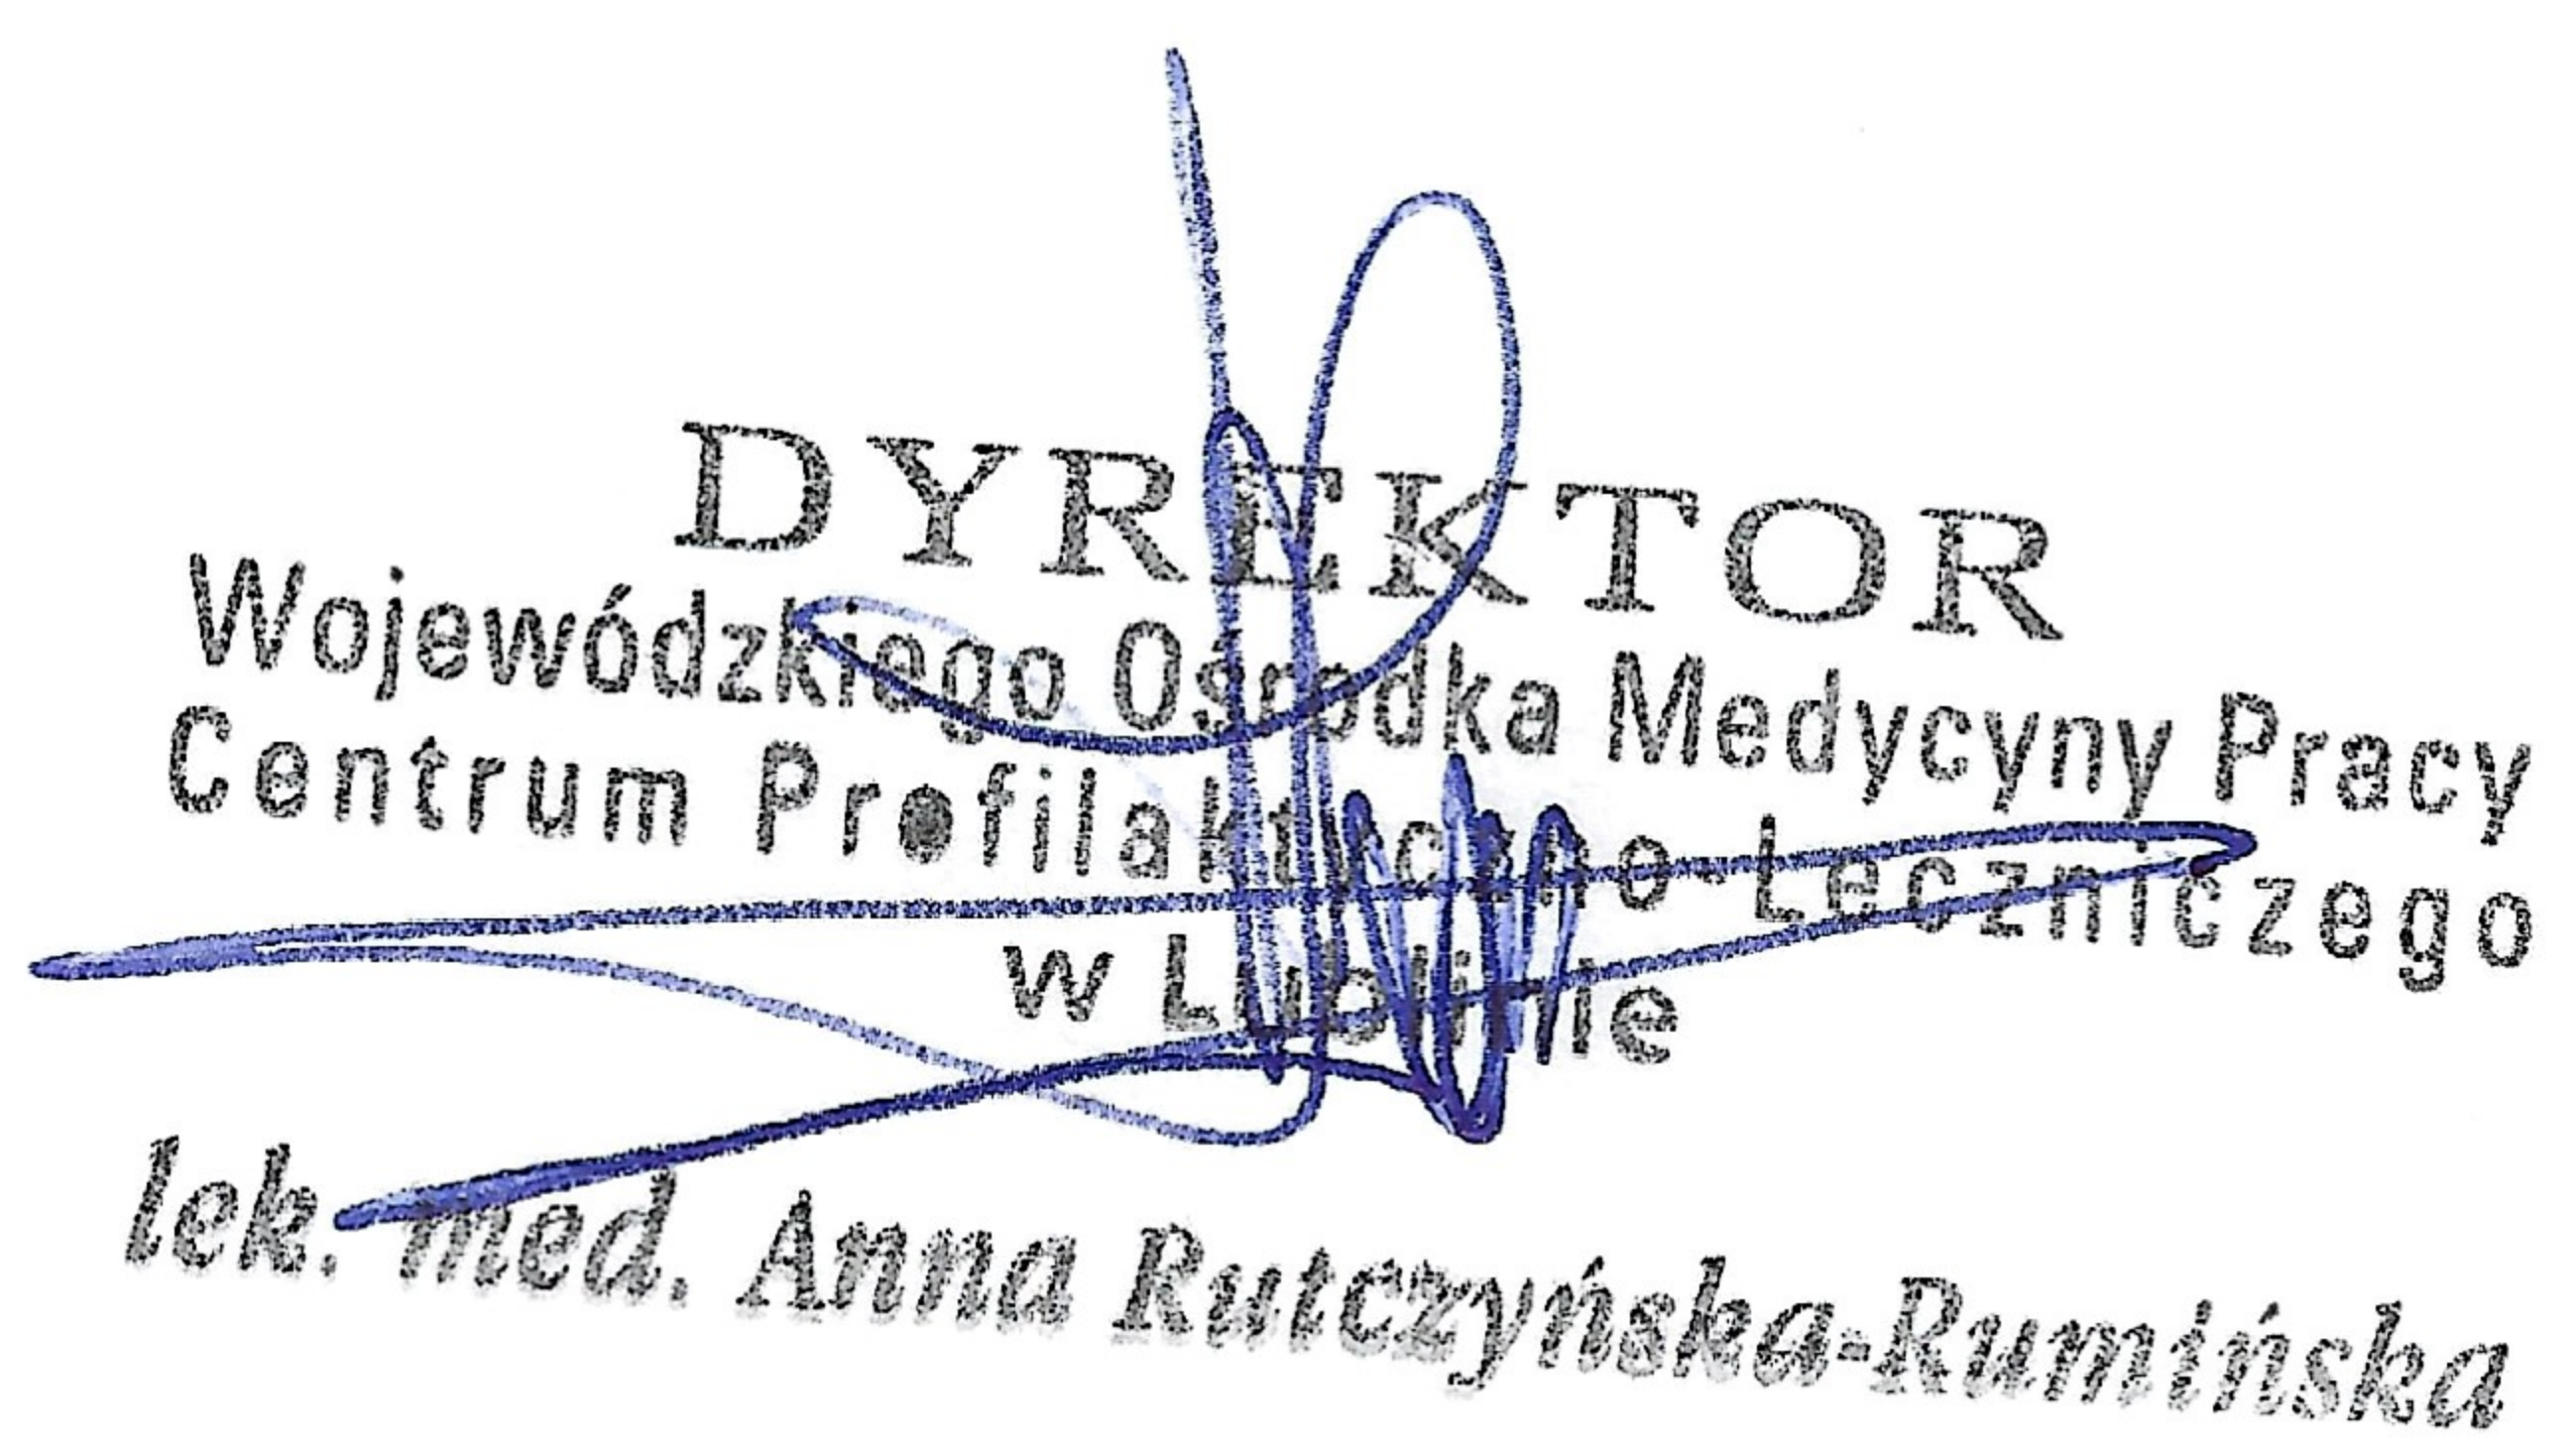 DYREKTOR
Wojewódzkiego Ośrodka Medycyny Pracy
Centrum Profilaktyczno-Leczniczego
w Lublinie
lek. med. Anna Rutczyńska-Rumińska